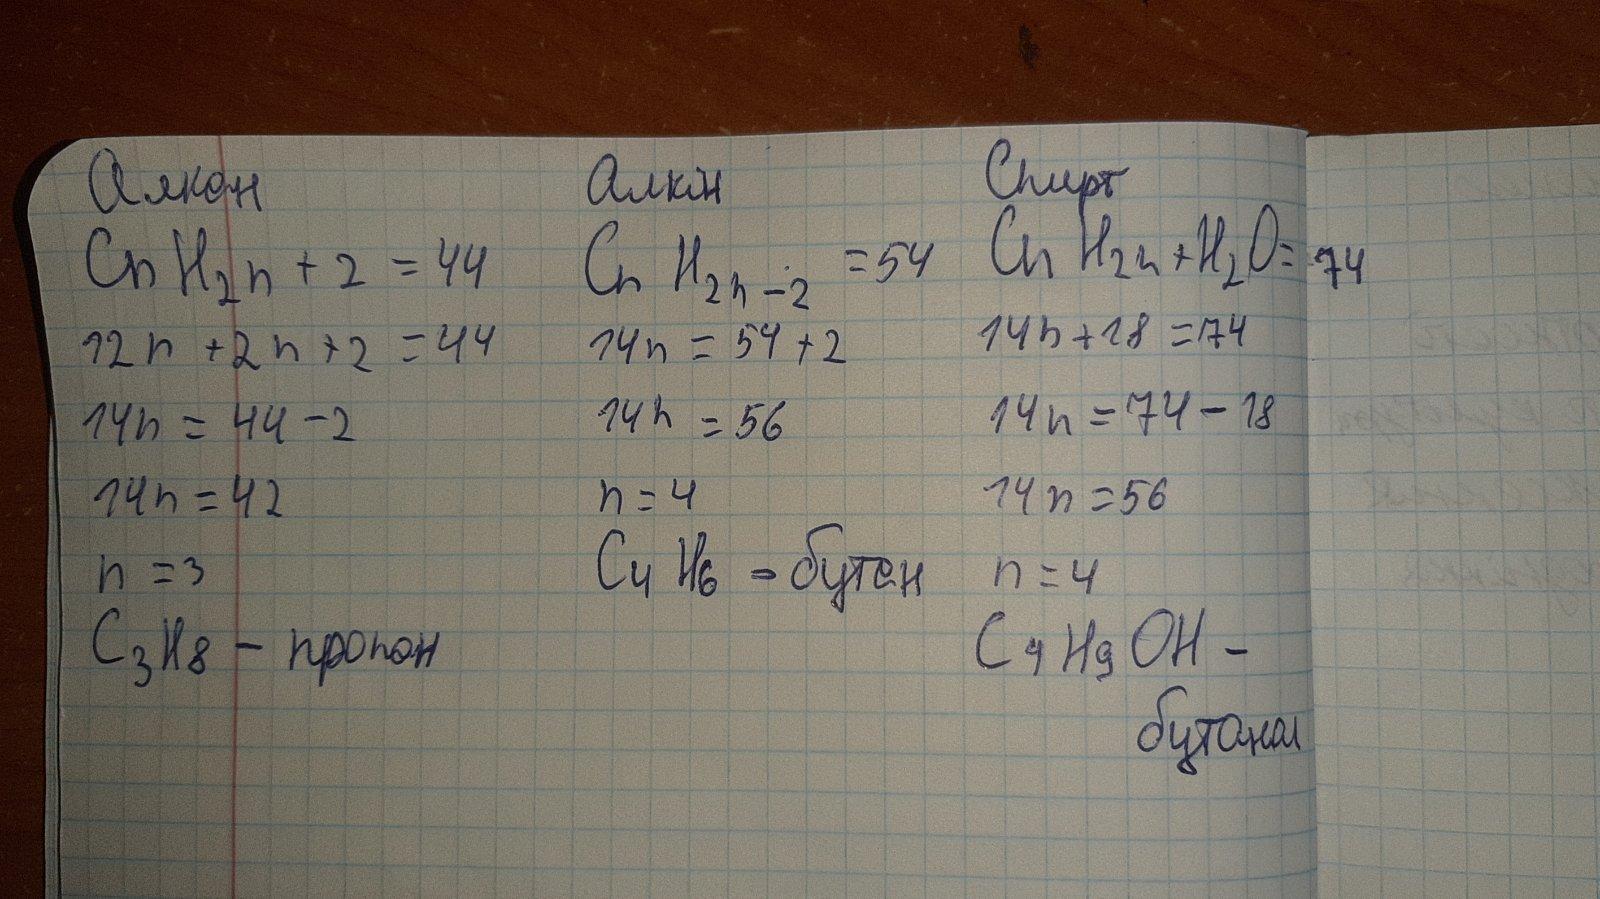 Алкан
CnH2n+2 = 44
12n + 2n + 2 = 44
14n = 44 - 2
14n = 42
n = 3
C3H8 - пропан
Алкін
CnH2n-2 = 54
14n = 54 + 2
14n = 56
n = 4
C4H6 - бутан
Спирт
CnH2n+H2O = 74
14n + 18 = 74
14n = 74 - 18
14n = 56
n = 4
C4H9OH -
бутанол